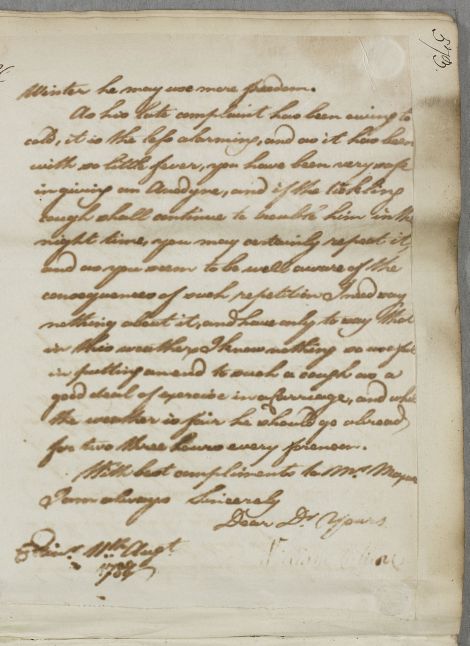 Winter he may use more freedom.
As his late complaint has been owing to
cold, it is the less alarming, and as it has been
with so little fever, you have been very safe
in giving an Anodyne, and if the tickling
cough shall continue to trouble him in the
night time, you may certainly repeat it,
and as you seem to be well aware of the
consequences of such repetition I need say
nothing about it, and have only to say that
in this weather I know nothing so useful
in putting an end to such a cough as a
good deal of exercise in a Carriage, and while
the weather is fair he should go abroad
for two three hours every forenoon.
With best compliments to Mrs
I am always Sincerely
Dear Dr. Yours
Edinr. 11th Augt.